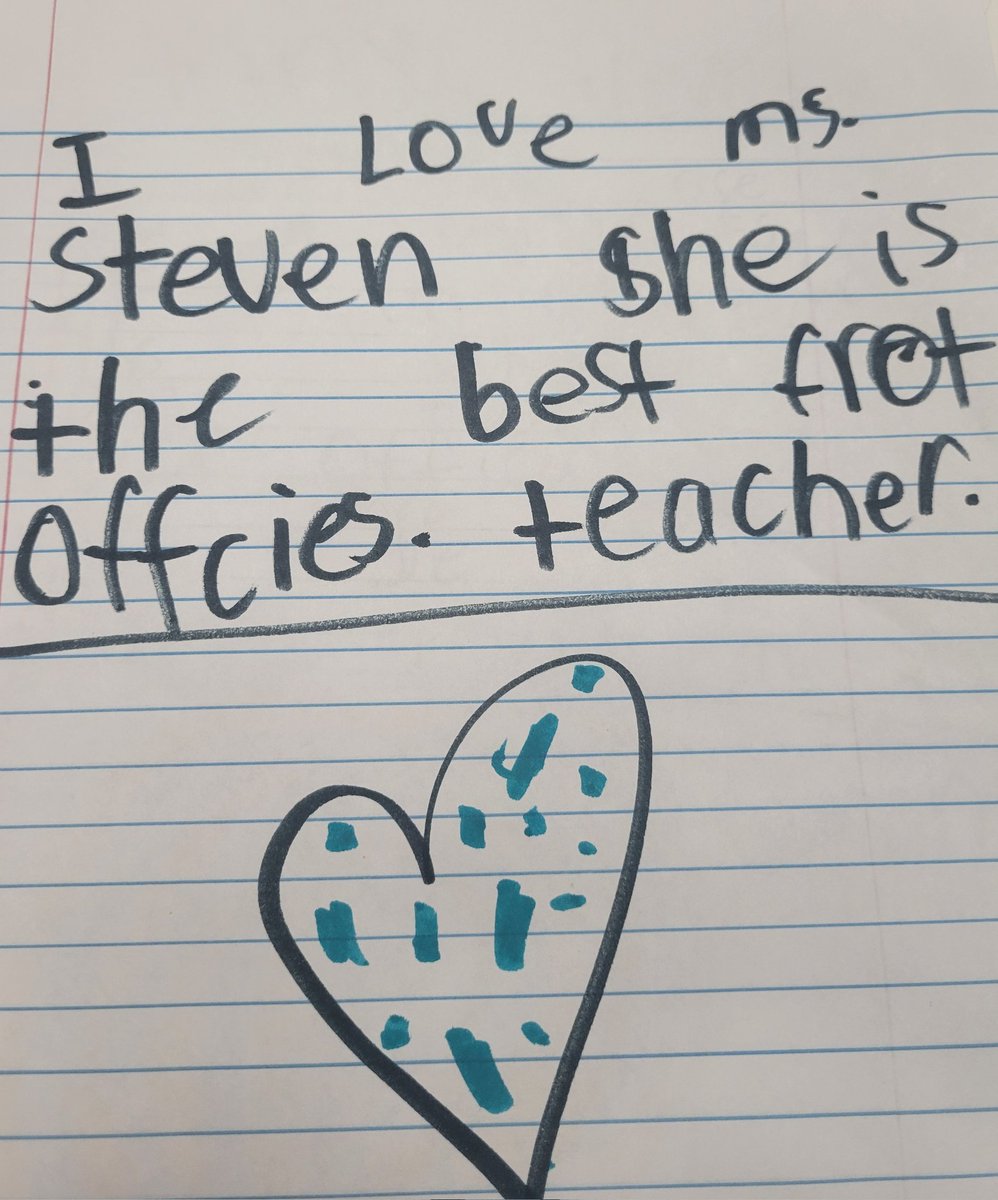 I Love ms.
Steven she is
the best frot
Offcies. teacher.